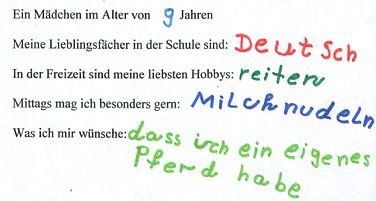 Ein Mädchen im Alter von 9 Jahren
Meine Lieblingsfächer in der Schule sind: Deutsch
In der Freizeit sind meine liebsten Hobbys: reiten
Mittags mag ich besonders gern: Milchnudeln
Was ich mir wünsche: dass ich ein eigenes
Pferd habe